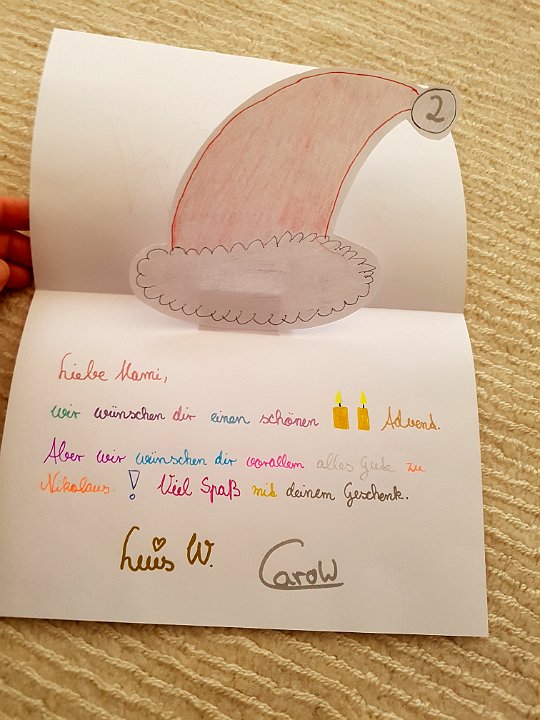 2
Liebe Mami,
wir wünschen dir einen schönen Advent.
Aber wir wünschen dir vorallem alles Gute zu
Nikolaus. ! Viel Spaß mit deinem Geschenk.
Luis W. CaroW